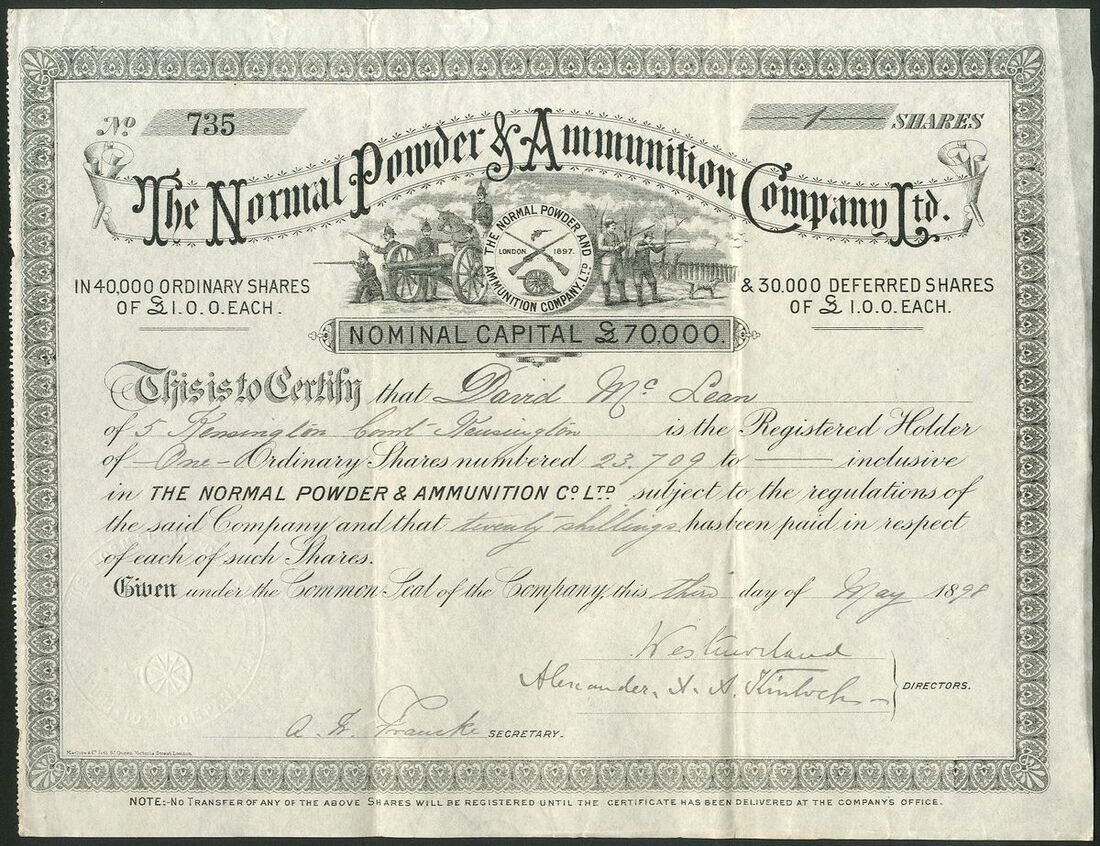 No 735
1 SHARES
The Normal Powder & Ammunition Company Ltd.
THE NORMAL POWDER AND
LONDON 1897.
AMMUNITION COMPANY, LTD
IN 40,000 ORDINARY SHARES
OF £1.0.0. EACH.
& 30,000 DEFERRED SHARES
OF £1.0.0. EACH.
NOMINAL CAPITAL £70,000.
This is to Certify that David Mc Lean
of 5 Kensington Court Kensington is the Registered Holder
of One Ordinary Shares numbered 23.709 to — inclusive
in THE NORMAL POWDER & AMMUNITION Co LTD subject to the regulations of
the said Company and that twenty shillings has been paid in respect
of each of such Shares.
Given under the Common Seal of the Company, this third day of May 1898
Westmorland
Alexander. A. Kinloch
DIRECTORS.
Francke SECRETARY.
Queen Victoria Street London.
NOTE:-No TRANSFER OF ANY OF THE ABOVE SHARES WILL BE REGISTERED UNTIL THE CERTIFICATE HAS BEEN DELIVERED AT THE COMPANY'S OFFICE.